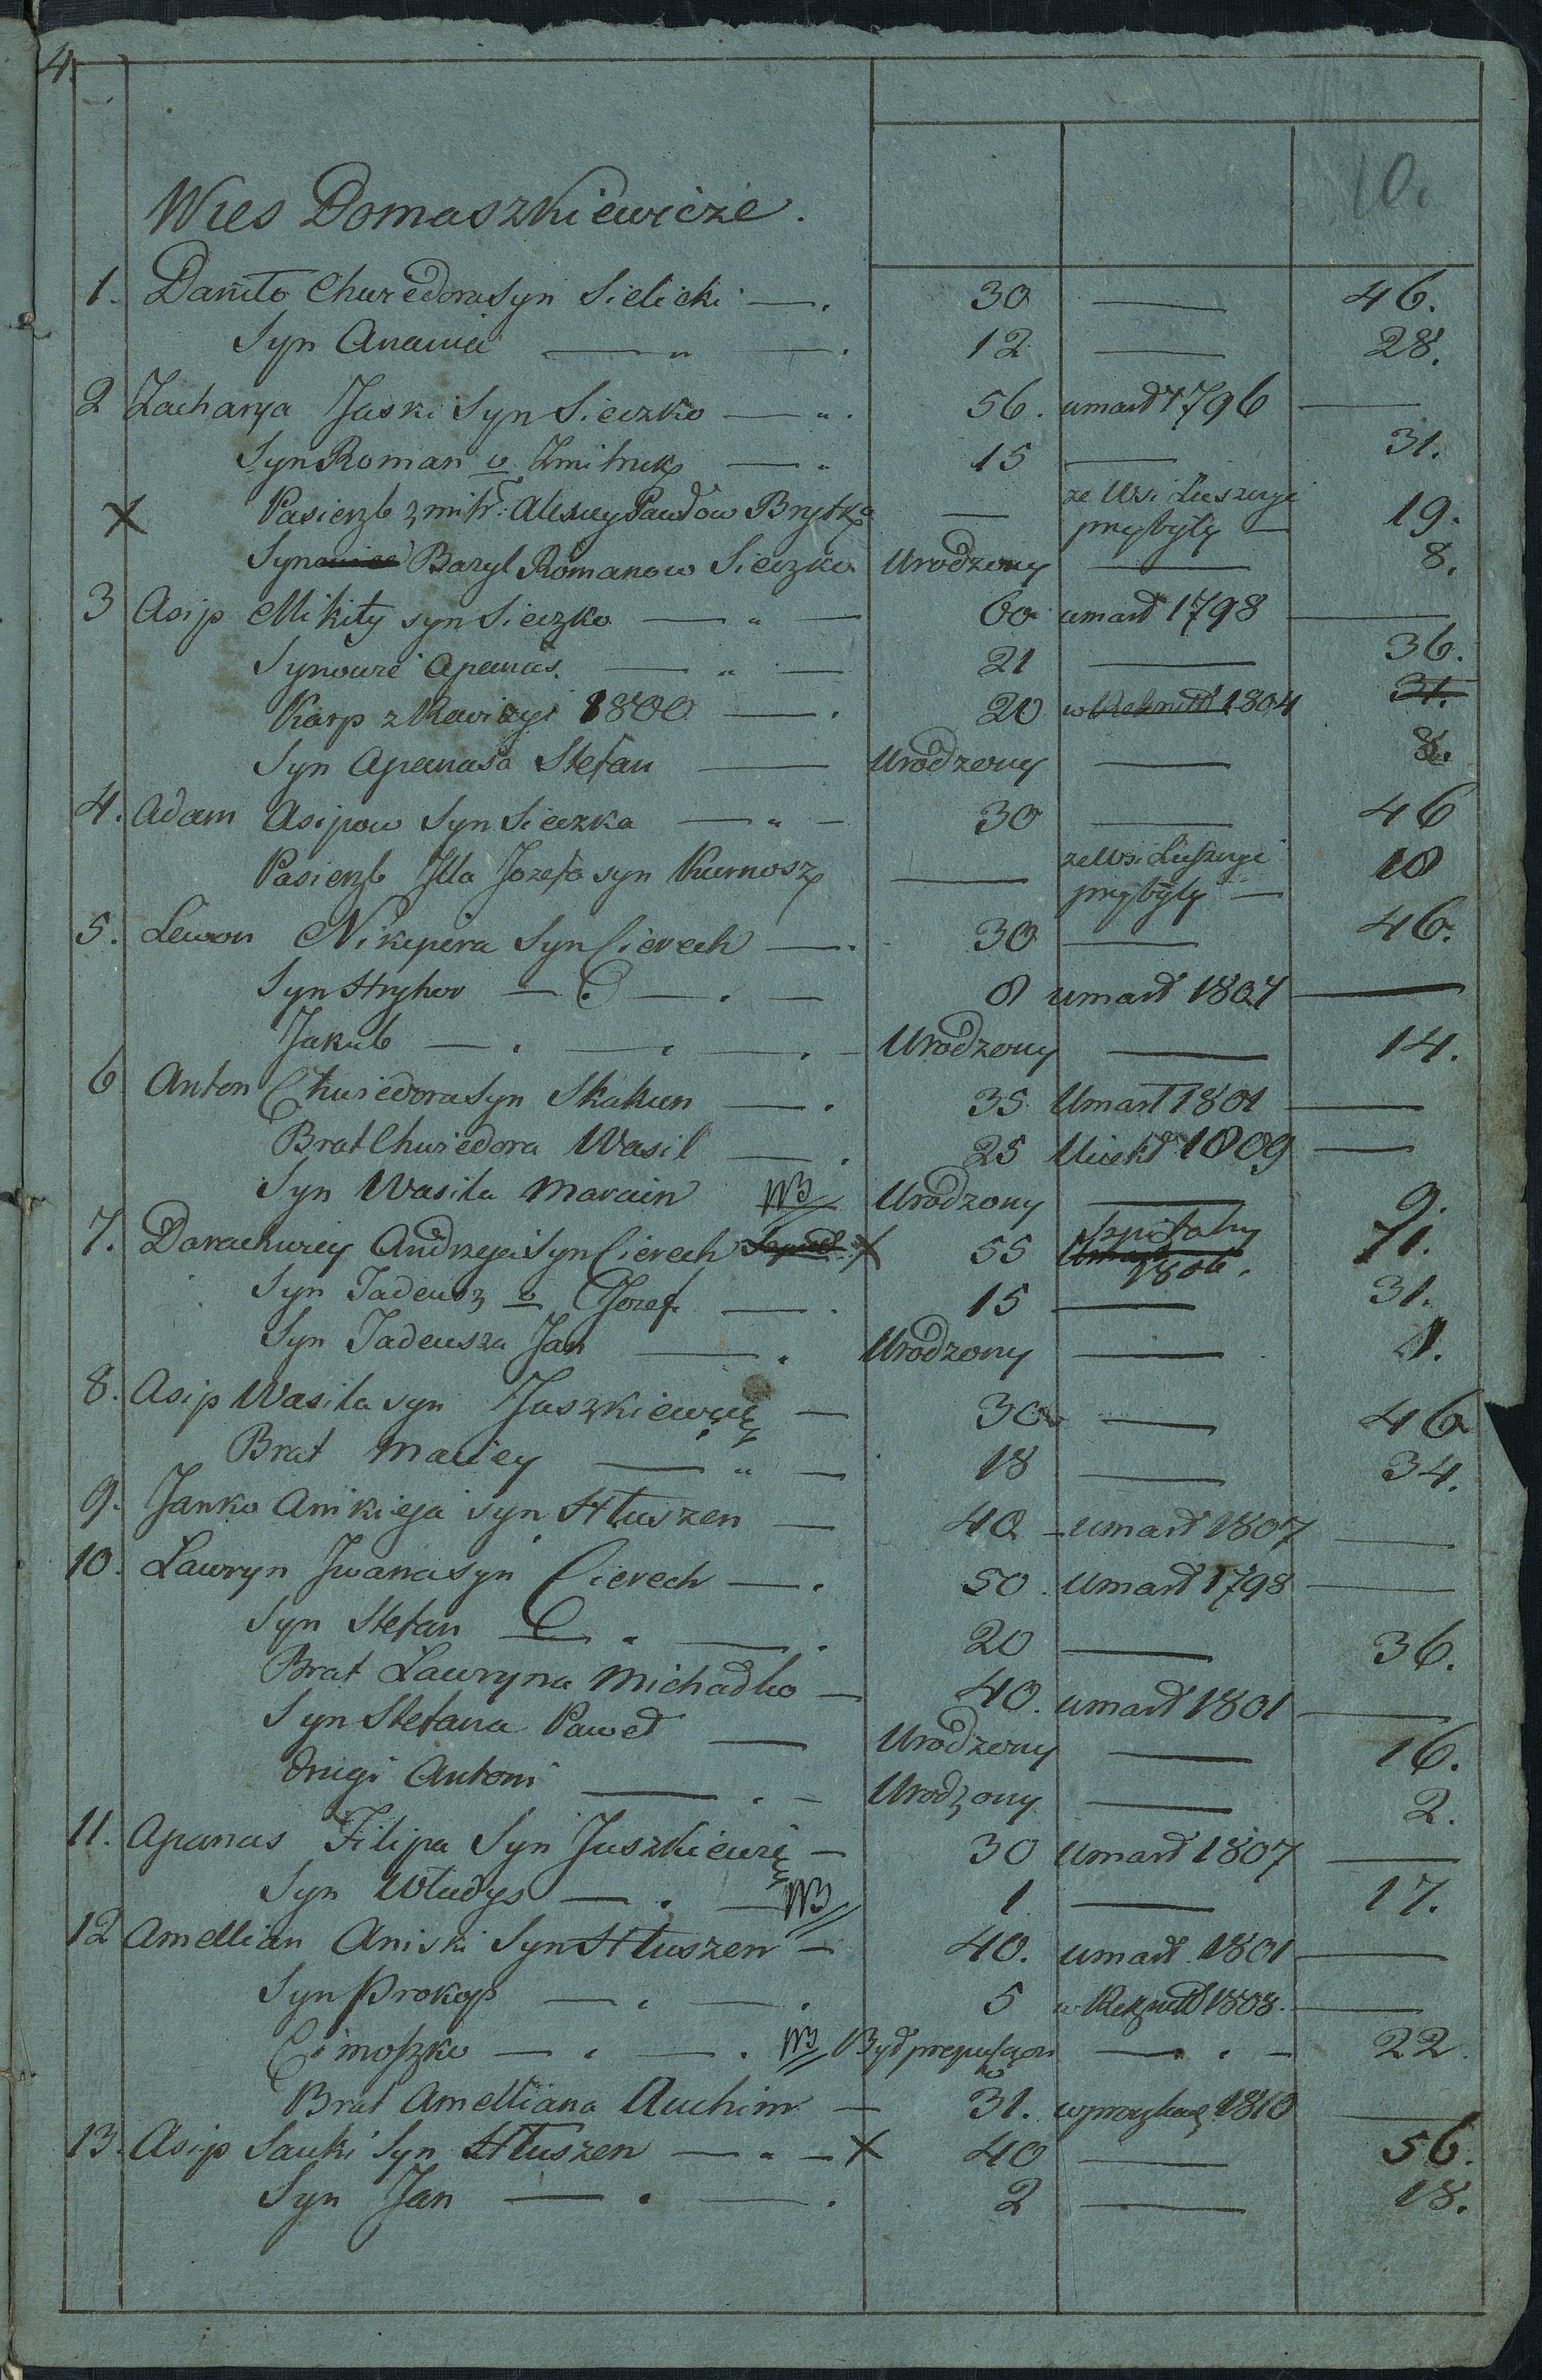 4.
10.
Wies Domaszkiewicze.
1. Daniło Chwiedora syn Sielicki — . 30 — 46.
Syn Anania — „ — . 12 — 28.
2 Zacharya Jaski Syn Sieczko — „ . 56. umarł 1796 —
Syn Roman v Zmitruk — „ 15 — 31.
X Pasierzb zmitr: Alexiey Pawłow Brytka — ze Wsi Luszczyi przybyły — 19.
Syn Bazyl Romanow Sieczko Urodzony — 8.
3 Asip Mikity syn Sieczko — „ — 60 umarł 1798 —
Synowie Apanas. — „ — 21 — 36.
Karp z Rewizyi 1800 — . 20 w Rekrutt 1804 31.
Syn Apanasa Stefan — Urodzony — 8.
4. Adam Asipow Syn Sieczka — „ — 30 — 46
Pasierzb Illa Jozefa syn Kurnosz — ze Wsi Luszczyi przybyły — 18
5. Lewon Nikipera Syn Cierech — . 30 — 46.
Syn Hryhor — . — . — 8 umarł 1807 —
Jakub — . — . — . — Urodzony — 14.
6 Anton Chwiedora Syn Skakun — . 35 Umarł 1801 —
Brat Chwiedora Wasil — . 25 Uciekł 1809 —
Syn Wasila Marcin NB Urodzony — 9.
7. Darachwiey Andrzeja Syn Cierech X 55 Szpitalny 1806. 71.
Syn Tadeusz v Jozef — . 15 — 31.
Syn Tadeusza Jan — . Urodzony — 1.
8. Asip Wasila syn Juszkiewicz — 30 — 46
Brat Maciey — „ — 18 — 34.
9. Janko Anikieja syn Hłuszen — 40 — umarł 1807 —
10. Ławryn Jwana syn Cierech — . 50. Umarł 1798 —
Syn Stefan — „ — . 20 — 36.
Brat Ławryna Michałko — 40. umarł 1801 —
Syn Stefana Paweł — Urodzony — 16.
drugi Antoni — . — Urodzony — 2.
11. Apanas Filipa Syn Juszkiewicz — 30 Umarł 1807 —
Syn Władys — . — NB 1 — 17.
12 Amellian Aniski Syn Hłuszen — 40. umarł 1801 —
Syn Prokop — . — . 5 w Rekrutt 1808. —
Cimoszko — . — . NB Był prepuszczon — . — 22.
Brat Amelliana Auchim — 31. 1810 —
13. Asip Sauki Syn Hłuszen — „ — X 40 — 56.
Syn Jan — . — . 2 — 18.